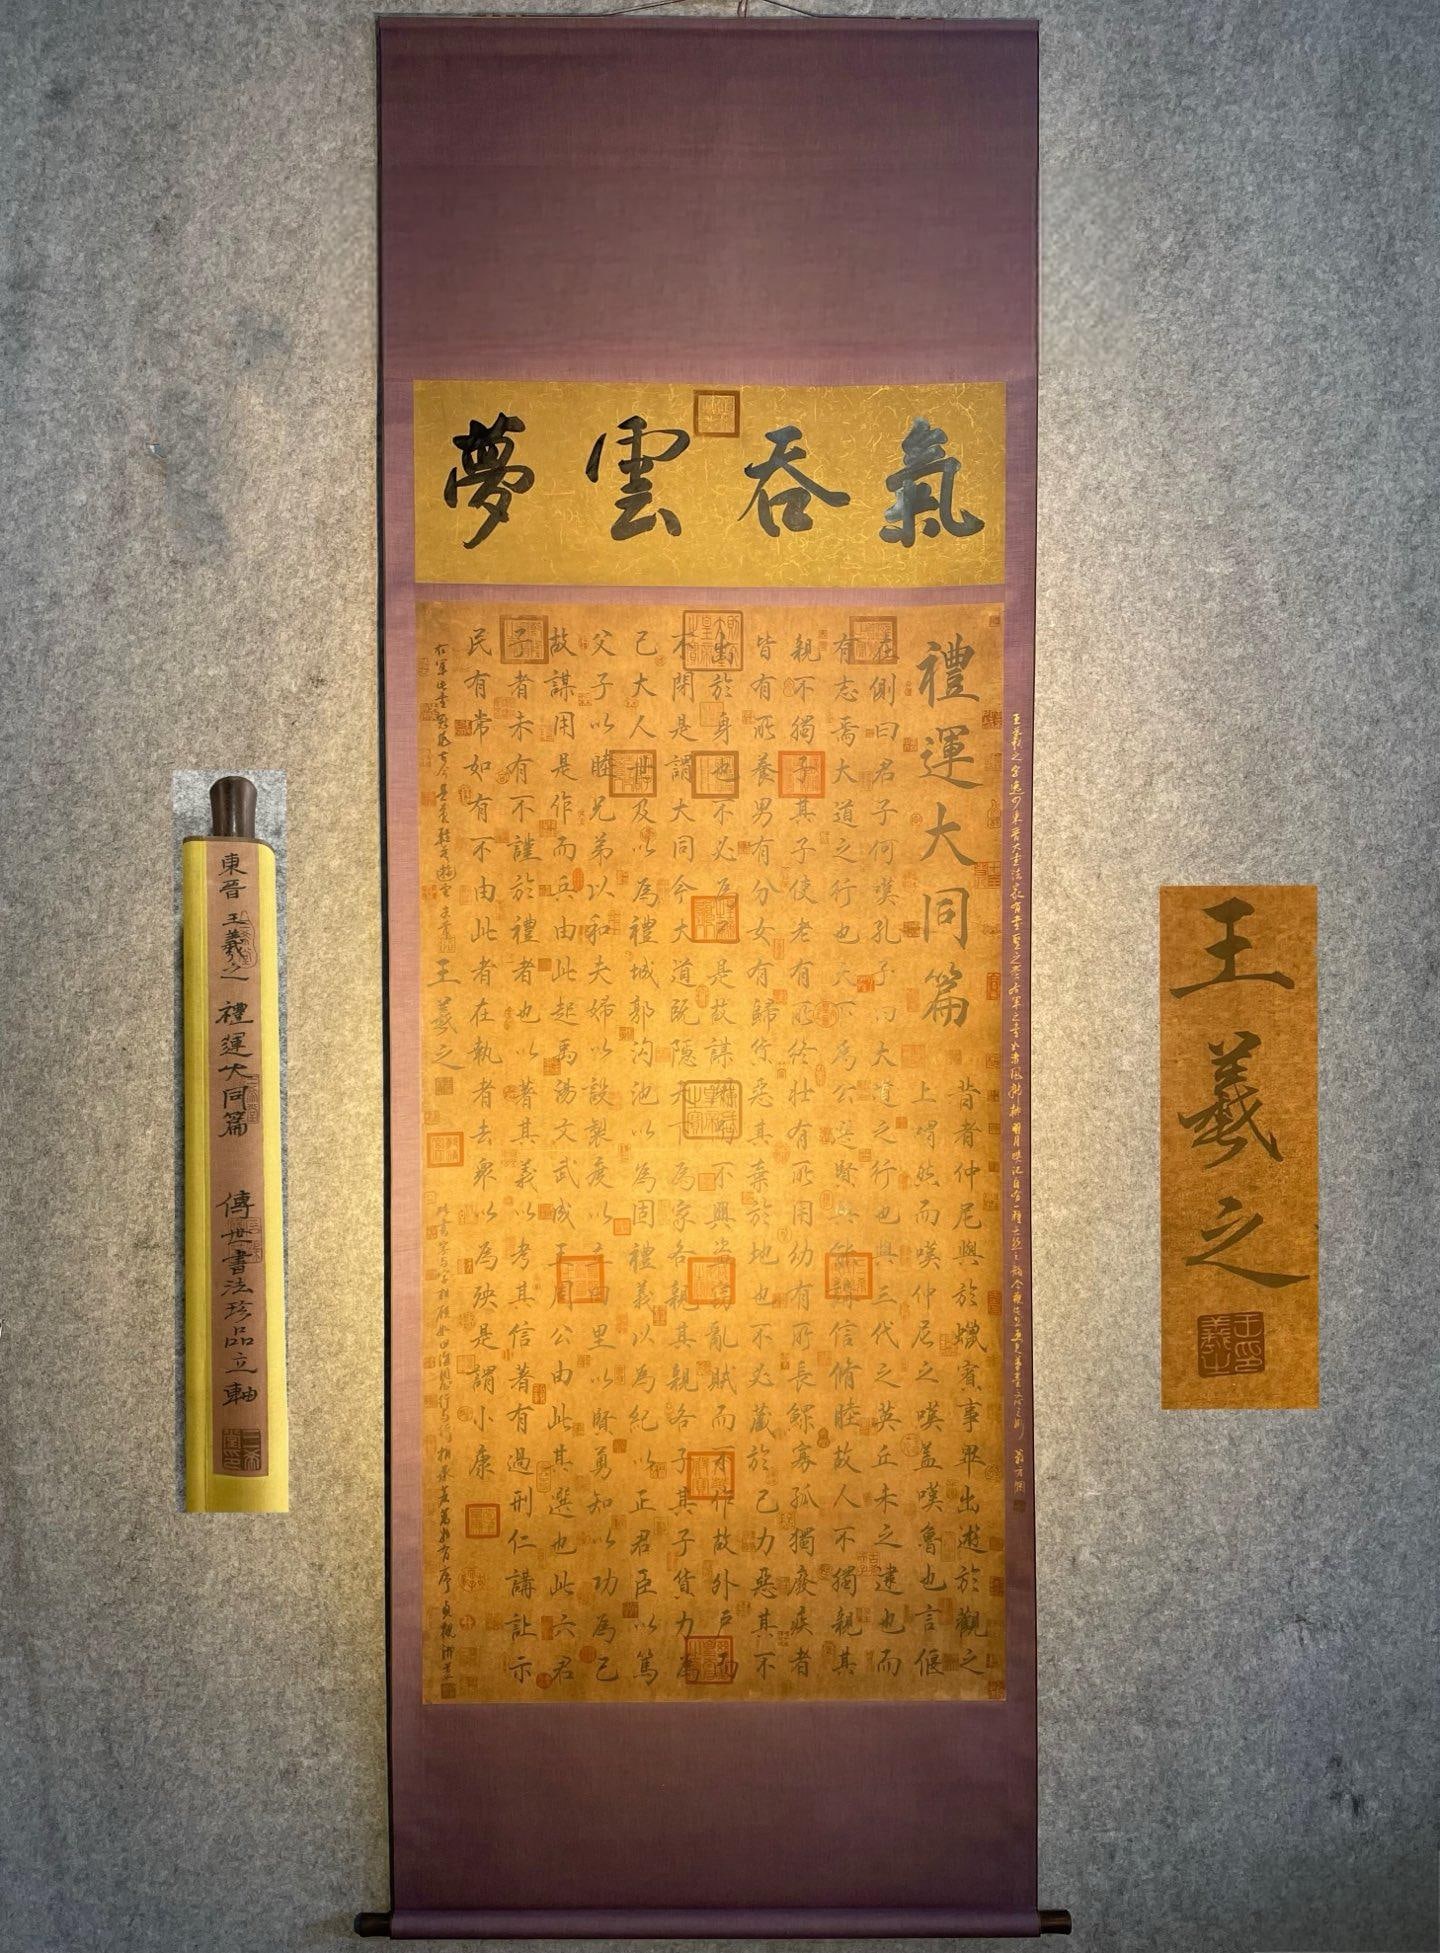 氣吞雲夢
禮運大同篇
昔者仲尼與於蠟賓事畢出遊於觀之
上喟然而嘆仲尼之嘆蓋嘆魯也言偃
在側曰君子何嘆孔子曰大道之行也與三代之英丘未之逮也而
有志焉大道之行也天下為公選賢與能講信脩睦故人不獨親其
親不獨子其子使老有所終壯有所用幼有所長鰥寡孤獨廢疾者
皆有所養男有分女有歸貨惡其棄於地也不必藏於己力惡其不
出於身也不必為己是故謀閉而不興盜竊亂賊而不作故外戶而
不閉是謂大同今大道既隱天下為家各親其親各子其子貨力為
己大人世及以為禮城郭沟池以為固禮義以為紀以正君臣以篤
父子以睦兄弟以和夫婦以設製度以立田里以賢勇知以功為己
故謀用是作而兵由此起禹湯文武成王周公由此其選也此六君
子者未有不謹於禮者也以著其義以考其信著有過刑仁講讓示
民有常如有不由此者在執者去眾以為殃是謂小康
王羲之
東晉 王羲之 禮運大同篇 傳世書法珍品立軸
王羲之